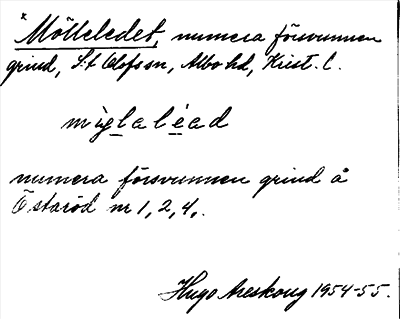 *Mölleledet, numera försvunnen
grind, S:t Olofs sn, Albo hd, Krist. l.
mig̲lalèad
numera försvunnen grind å
Östaröd nr 1, 2, 4.
Hugo Areskoug 1954-55.